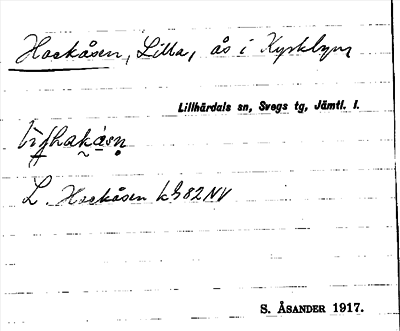 Hockåsen, Lilla, ås i Kyrkbyn
Lillhärdals sn, Svegs tg, Jämtl. l.
L. Hockåsen k 982 NV
S. ÅSANDER 1917.